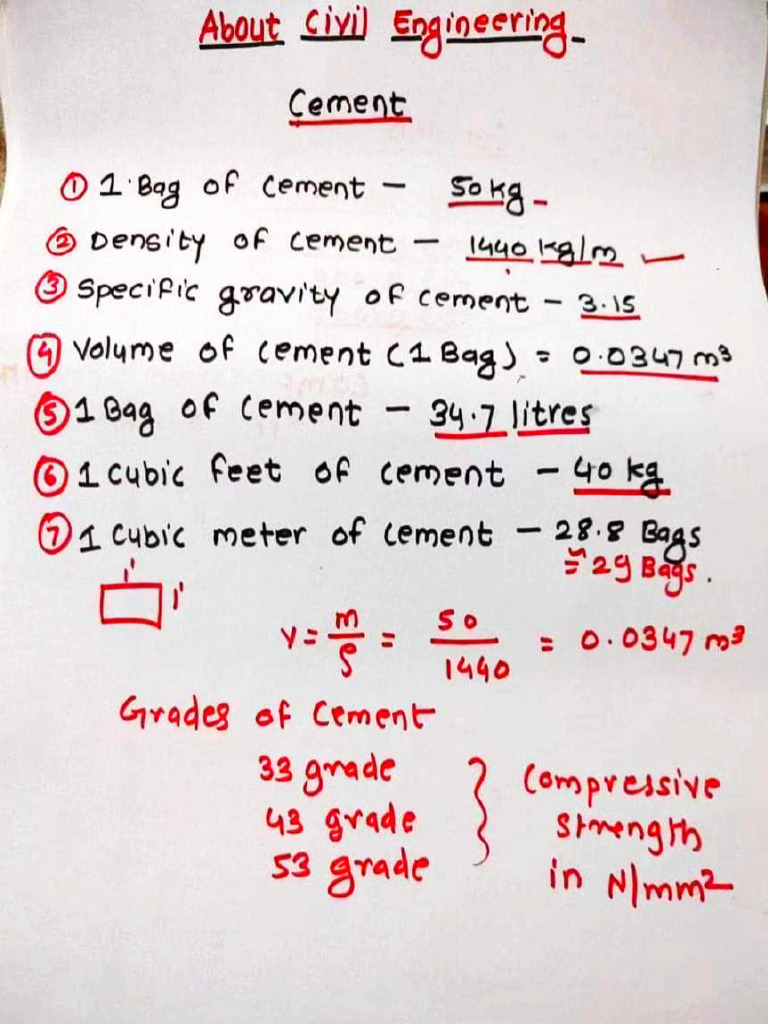 About Civil Engineering
Cement
① 1 Bag of cement - 50 kg
② Density of cement - 1440 kg/m
③ Specific gravity of cement - 3.15
④ Volume of cement (1 Bag) = 0.0347 m³
⑤ 1 Bag of cement - 34.7 litres
⑥ 1 cubic feet of cement - 40 kg
⑦ 1 cubic meter of cement - 28.8 Bags
≅ 29 Bags.
1'
1'
V = m/ρ = 50/1440 = 0.0347 m³
Grades of cement
33 grade
43 grade
53 grade
} compressive
strength
in N/mm²